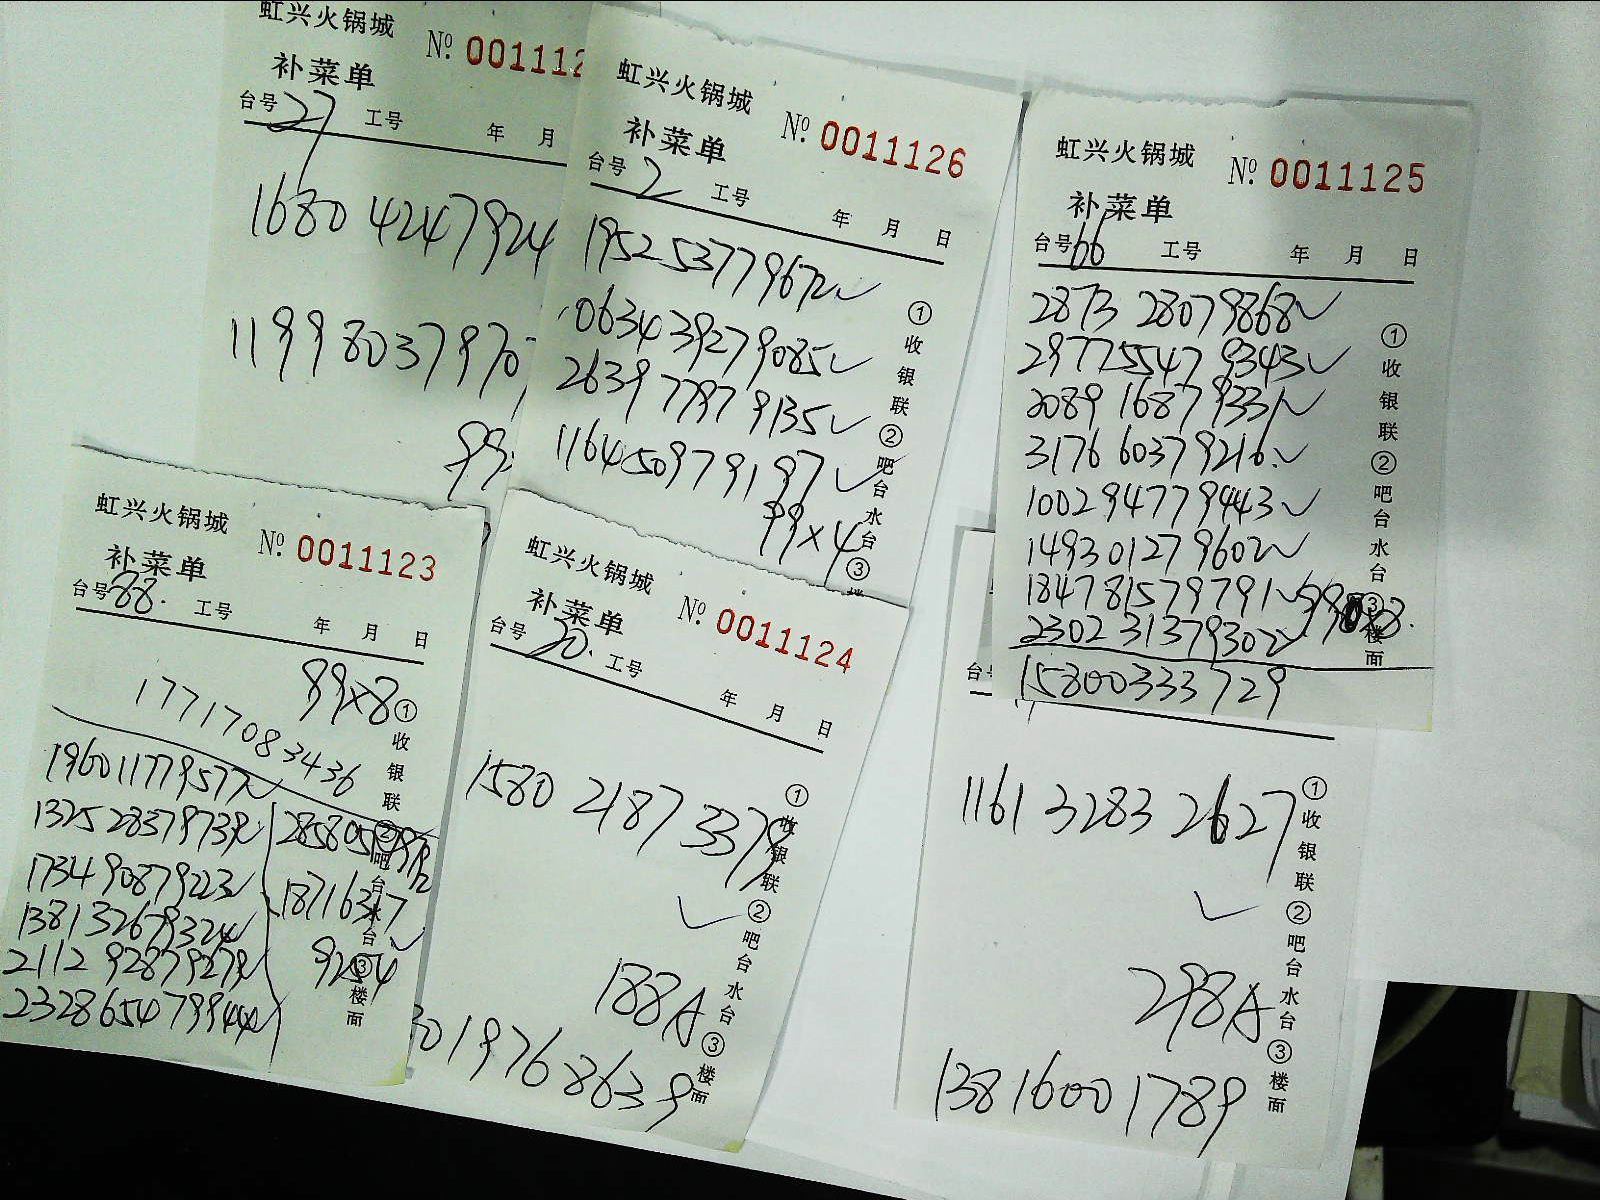 虹兴火锅城
№ 001112
补菜单
台号 27 工号 年 月
1680 4247924
1199803797
99
虹兴火锅城
№ 0011126
补菜单
台号 2 工号 年 月 日
195253779672✓
063439279085✓
263977979135✓
116450979197✓
99×4
①收银联②吧台水台③楼
虹兴火锅城
№ 0011125
补菜单
台号 66 工号 年 月 日
2873 28079868✓
297755479343✓
2089 16879331✓
3176 60379216✓
100294779443✓
149301279602✓
184781579791✓
2302 31379302✓
15800333729
①收银联②吧台水台③楼面
虹兴火锅城
№ 0011123
补菜单
台号 88. 工号 年 月 日
99×8
17717083436
196011779577✓
1325 28379739✓
173490879223✓
138132679324✓
2112 92879279✓
232865479944✓
18716317
9254✓
①收银联②吧台水台③楼面
虹兴火锅城
№ 0011124
补菜单
台号 20. 工号 年 月 日
1580 2187 3379
✓
188A
01976 8639
①收银联②吧台水台③楼面
台
1161 3283 2627
✓
298A
13816001789
①收银联②吧台水台③楼面